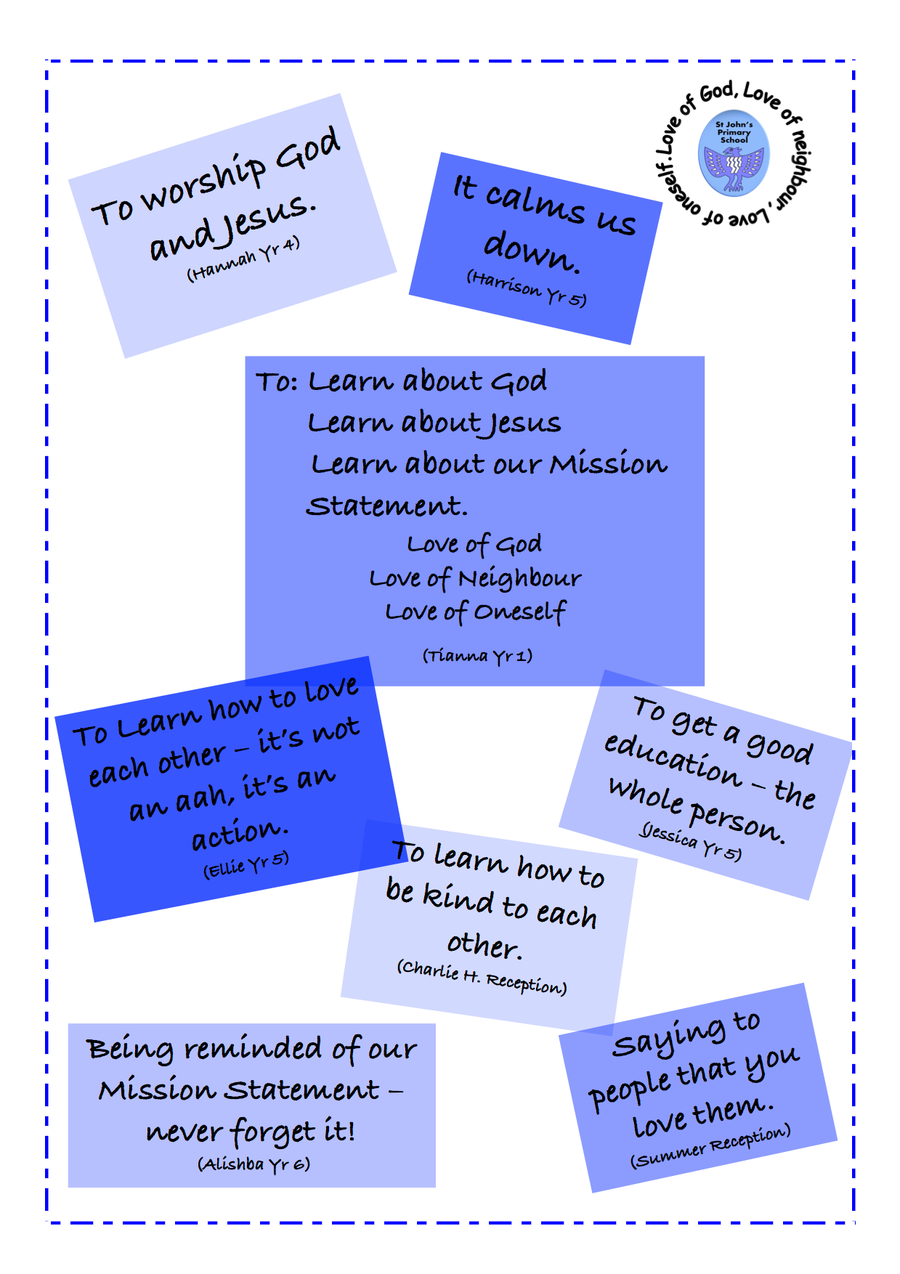 Love of God, Love of neighbour, Love of oneself.
St John's
Primary
School
To worship God
and Jesus.
(Hannah Yr 4)
It calms us
down.
(Harrison Yr 5)
To: Learn about God
Learn about Jesus
Learn about our Mission
Statement.
Love of God
Love of Neighbour
Love of Oneself
(Tianna Yr 1)
To Learn how to love
each other – it's not
an aah, it's an
action.
(Ellie Yr 5)
To get a good
education – the
whole person.
(Jessica Yr 5)
To learn how to
be kind to each
other.
(Charlie H. Reception)
Being reminded of our
Mission Statement –
never forget it!
(Alishba Yr 6)
Saying to
people that you
love them.
(Summer Reception)